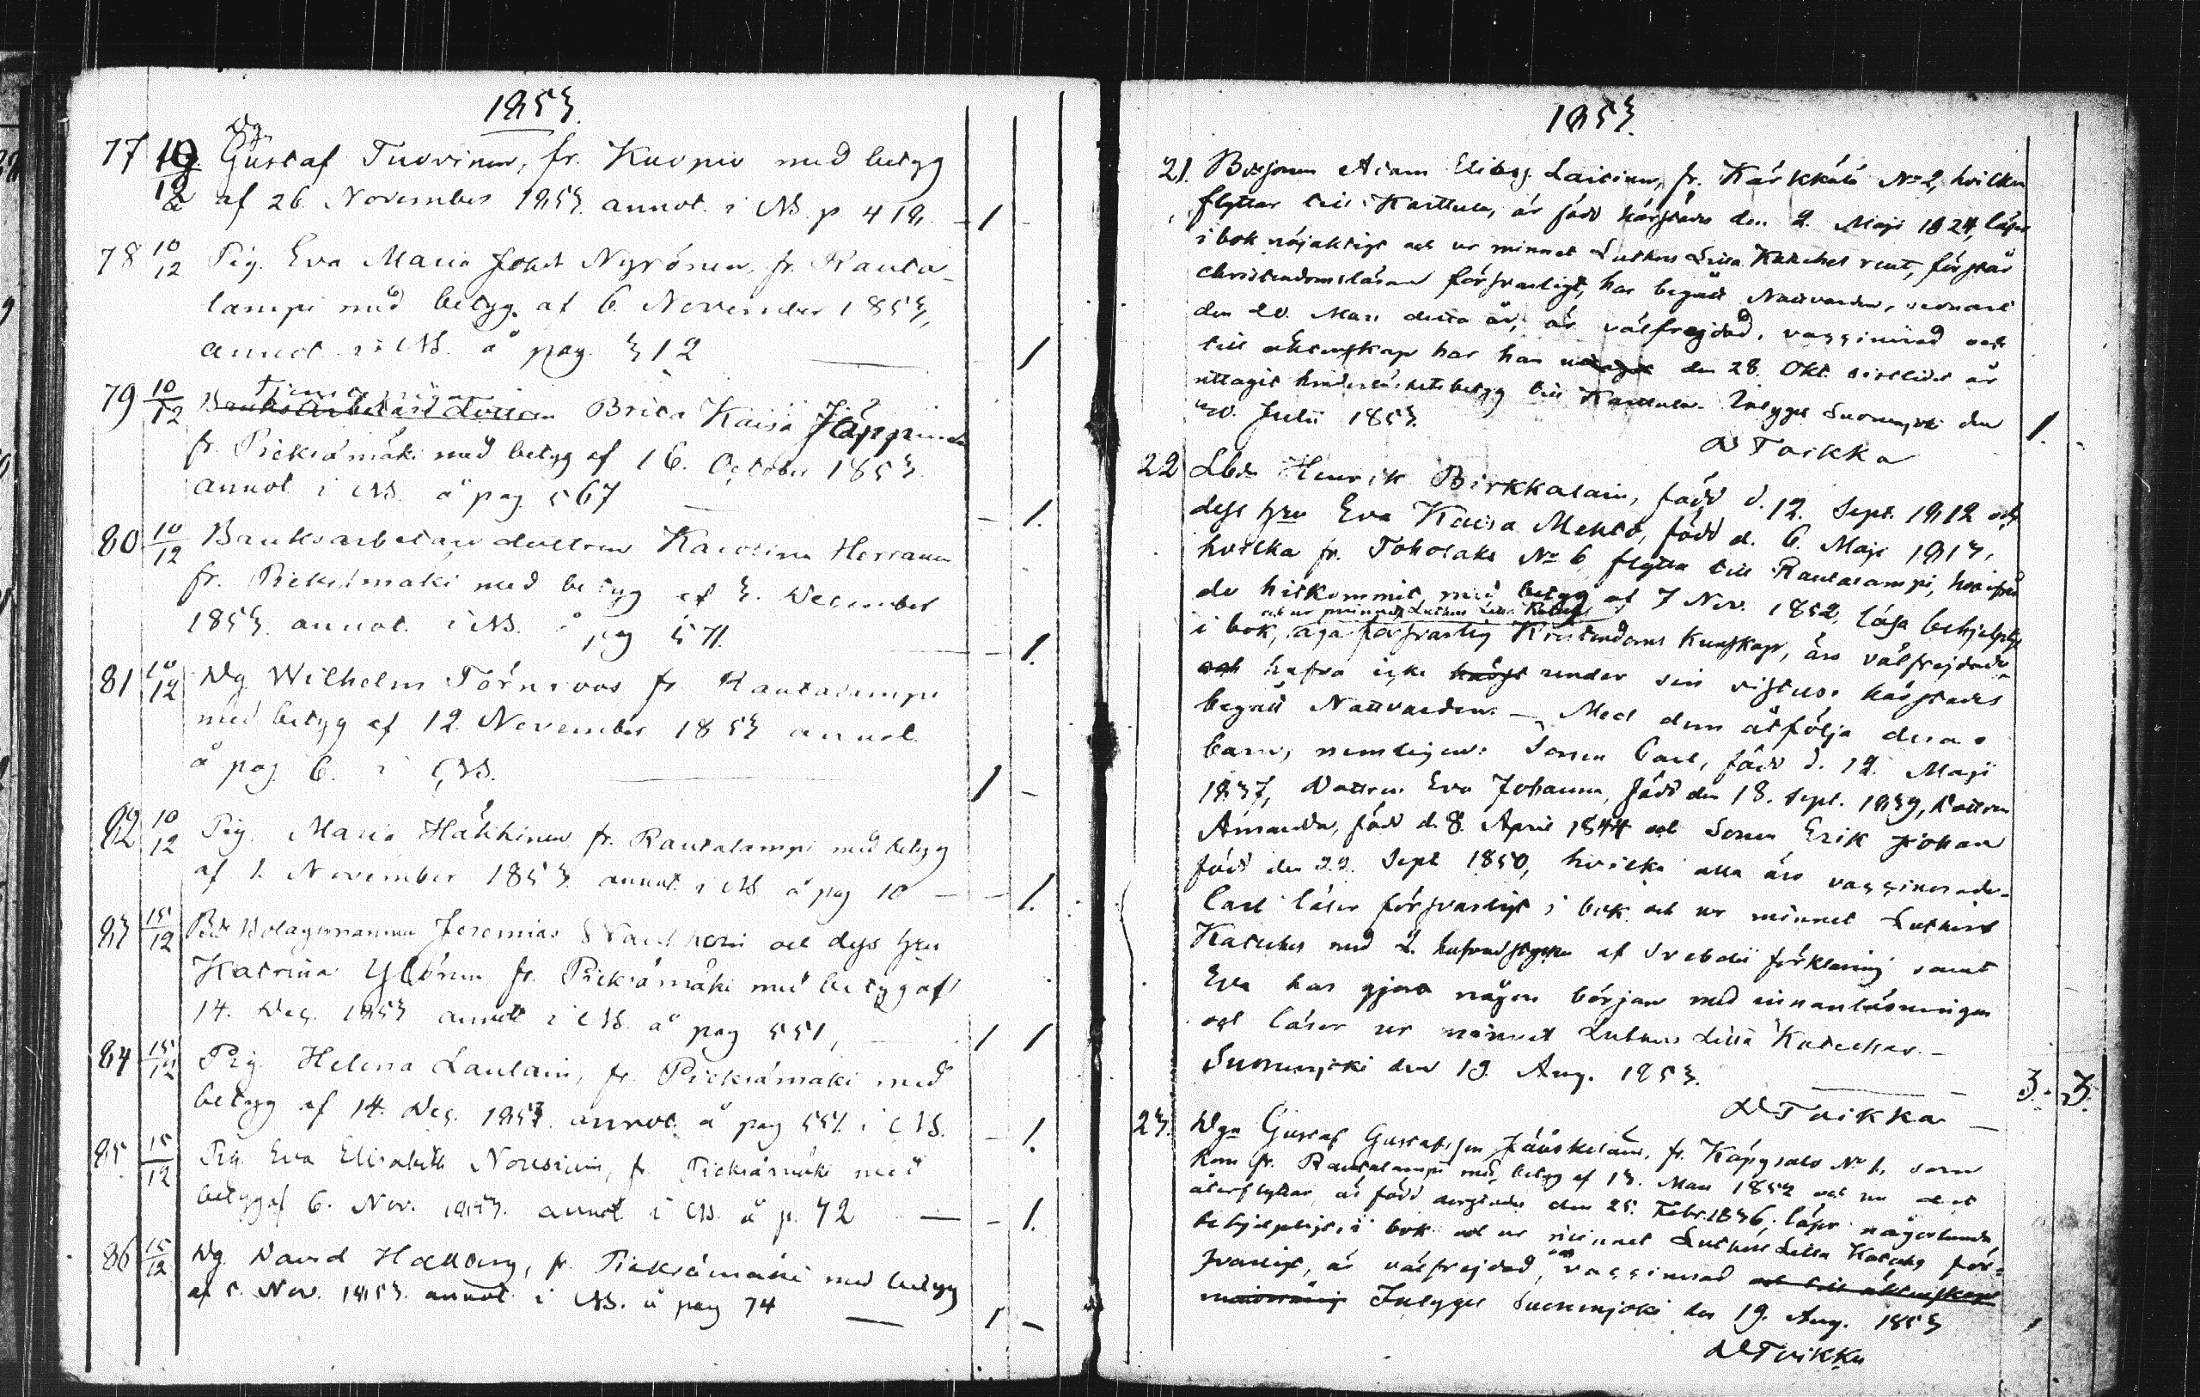 1853.
77 10/12 Dg. Gustaf Tuovinen, fr. Kuopio med betyg
af 26 November 1853. annot. i NB. p 418. - 1 -
78 10/12 Pig. Eva Maria Nyrönen, fr. Rauta-
lampi med betyg af 6 November 1853,
annot. i NB. å pag. 312 1
79 10/12 Brita Kaisa
fr. Pieksämäki med betyg af 16. October 1853.
annot i NB. å pag. 567 - 1.
80 10/12 Bruksarbetare dottren Karolina Herranen
fr. Pieksämäki med betyg af 3. December
1853. annot. i NB. å pag 571. - 1.
81 10/12 Dg Wilhelm Törnroos fr. Rautalampi
med betyg af 12. November 1853 annot.
å pag 6. i NB. 1 -
82 10/12 Pig. Maria Häkkinen fr. Rautalampi med betyg
af 1. November 1853. annot. i NB å pag 10 - - 1.
83 15/12 Bolagsmannen Jeremias och dess hru
Katrina Ylönen fr. Pieksämäki med betyg af
14. Dec. 1853 annot i NB. å pag 551, 1 1
84 15/12 Pig. Helena Laulain, fr. Pieksämäki med
betyg af 14. Dec. 1853. annot. å pag 551. i NB. - 1.
85 15/12 Pig. Eva Elisabeth Nousiain, fr. Pieksämäki med
betyg af 6. Nov. 1853. annot i NB. å p. 72 - - 1.
86 15/12 Dg. David Hallberg, fr. Pieksämäki med betyg
af 5. Nov. 1853. annot i NB. å pag 74 - 1 -
1853.
21. Adam Laitinen, fr. Kärkkälä No 2, hvilken
flyttar till Karttula, är född härstädes den 2. Maji 1824, läser
i bok nöjaktigt och ur minnet Luthers Lilla Kateches rent, förstår
christendomsläran försvarligt, har begått Nattvarden, senast
den 20. Mars detta år, är välfrejdad, vaccinerad och
till äktenskap har han den 28. Okt. sistlidet år
uttagit hinderslöshetsbetyg till Karttula. Intygas Suonenjoki den
20. Julii 1853. 1.
D Toikka
22 Lbd. Henrik Pirkkalain, född d. 12. Sept. 1812 och
dess hru Eva Kaisa Mehto, född d. 6. Maji 1813,
hvilka fr. Toholaks No 6 flytta till Rautalampi, hvarifrån
de hitkommit med betyg af 7 Nov. 1852, läsa behjelpligt
och ur minnet Luthers Lilla Kateches
i bok, äga försvarlig Kristendoms Kunskap, äro välfrejdade
och hafva icke under sin vistelse härstädes
begått Nattvarden. - Med dem åtfölja deras
barn, nemligen: Sonen Carl, född d. 12. Maji
1837, Dottren Eva Johanna, född den 18. Sept. 1839, Dottren
Amanda, född d. 8. April 1844 och Sonen Erik Johan
född den 22. Sept 1850, hvilka alla äro vaccinerade.
Carl läser försvarligt i bok och ur minnet Luthers
Kateches med 2. hufvudstycken af Svebelii förklaring samt
Eva har gjort någon början med innanläsningen
och läser ur minnet Luthers Lilla Kateches. -
Suonenjoki den 19. Aug. 1853. 3. 3.
D Toikka
23. Dgn Gustaf Gustafsson Jääskeläin, fr. Käpysalo No 1, som
kom fr. Rautalampi med betyg af 13. Mars 1852 och nu
återflyttar, är född derstädes den 25. Febr. 1836, läser någorlunda
behjelpligt i bok och ur minnet Luthers Lilla Kateches för-
svarligt, är välfrejdad, och vaccinerad och till äktenskap
Intygas Suonenjoki den 19. Aug. 1853 1
D Toikka